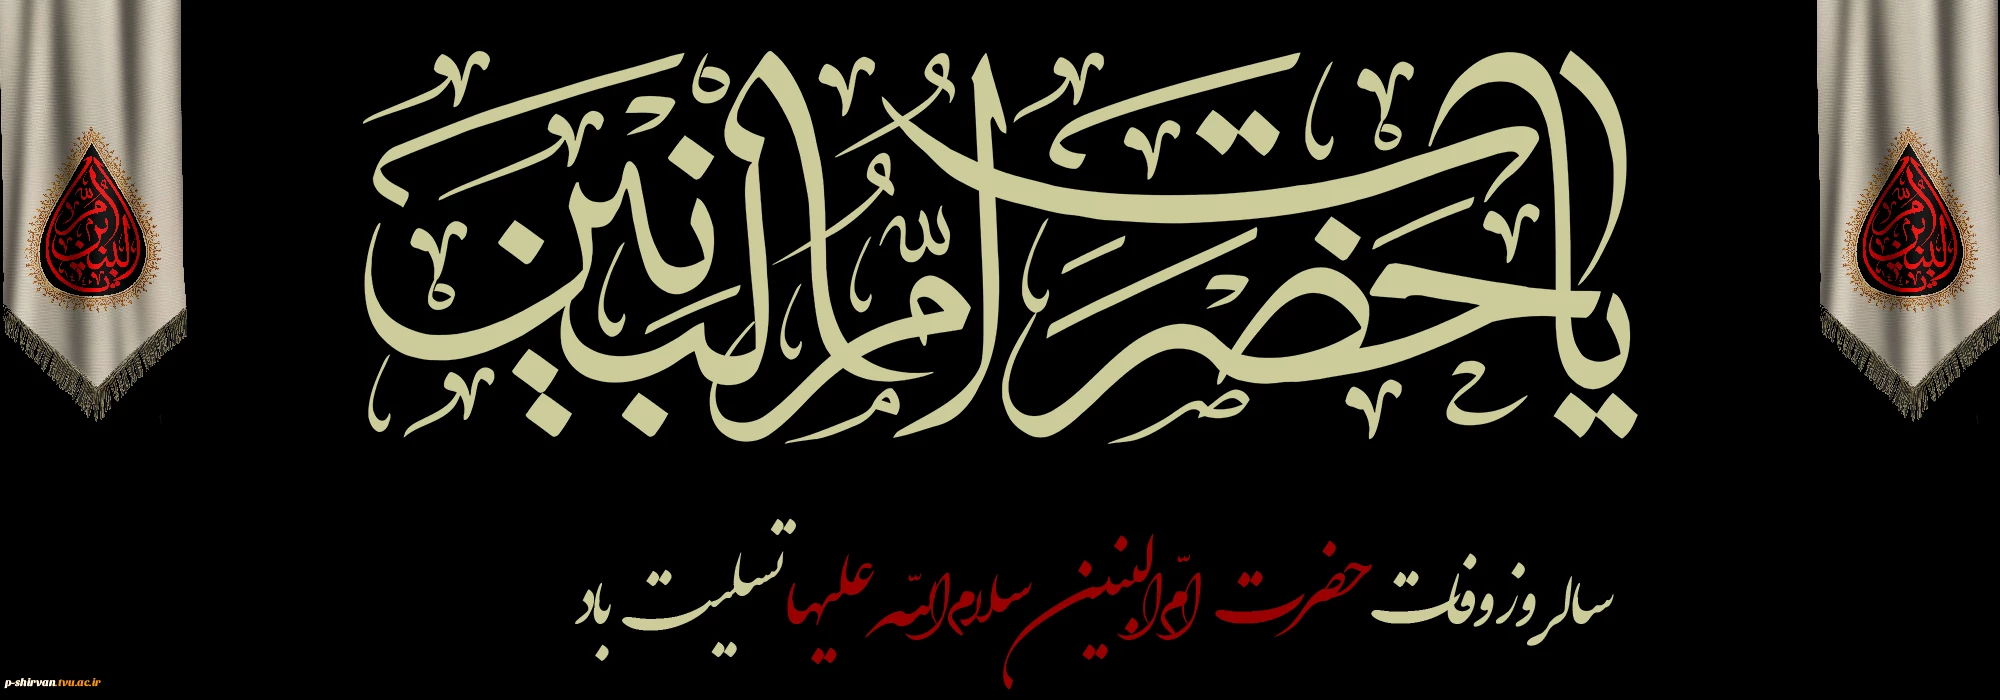 یا حضرت امّ البنین
سالروز وفات حضرت امّ البنین سلام الله علیها تسلیت باد
امّ البنین
امّ البنین
p-shirvan.tvu.ac.ir